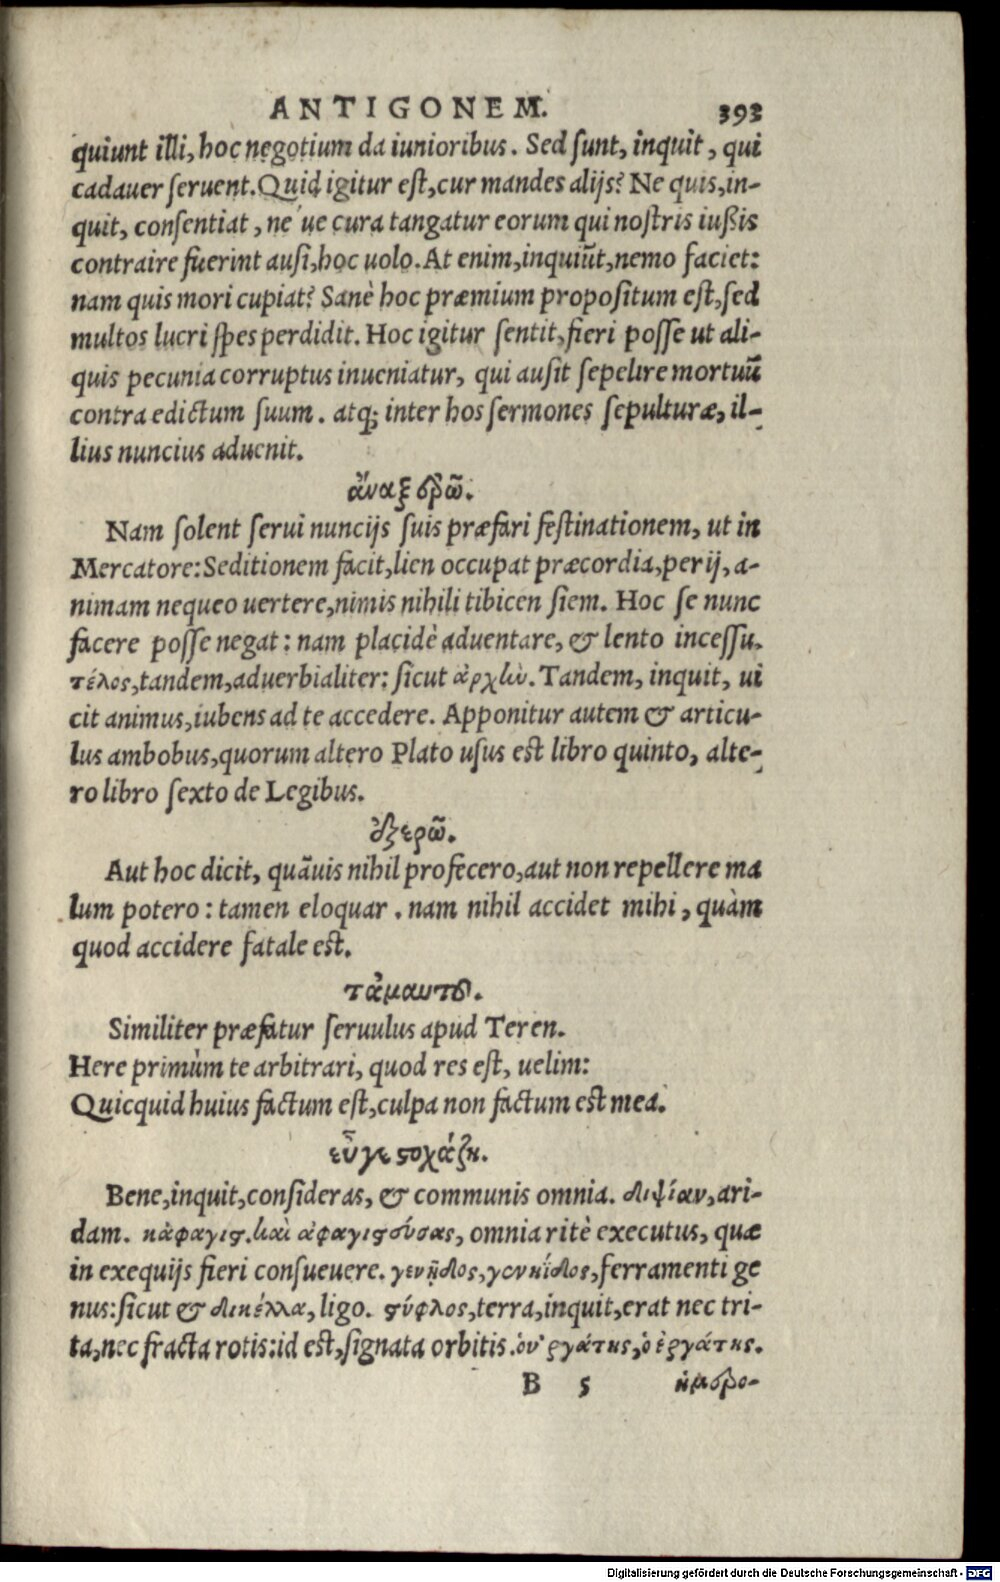 ANTIGONEM. 393
quiunt illi, hoc negotium da iunioribus. Sed sunt, inquit, qui
cadauer seruent. Quid igitur est, cur mandes alijs? Ne quis, in-
quit, consentiat, ne ue cura tangatur eorum qui nostris iußis
contraire fuerint ausi, hoc uolo. At enim, inquiūt, nemo faciet:
nam quis mori cupiat? Sanè hoc præmium propositum est, sed
multos lucri spes perdidit. Hoc igitur sentit, fieri posse ut ali-
quis pecunia corruptus inueniatur, qui ausit sepelire mortuū
contra edictum suum. atq; inter hos sermones sepulturæ, il-
lius nuncius aduenit.
ἄναξ ἐρῶ.
Nam solent serui nuncijs suis præfari festinationem, ut in
Mercatore: Seditionem facit, lien occupat præcordia, perij, a-
nimam nequeo uertere, nimis nihili tibicen siem. Hoc se nunc
facere posse negat: nam placidè aduentare, & lento incessu.
τέλος, tandem, aduerbialiter: sicut ἀρχὴν. Tandem, inquit, ui
cit animus, iubens ad te accedere. Apponitur autem & articu-
lus ambobus, quorum altero Plato usus est libro quinto, alte-
ro libro sexto de Legibus.
ἐξερῶ.
Aut hoc dicit, quāuis nihil profecero, aut non repellere ma
lum potero: tamen eloquar. nam nihil accidet mihi, quàm
quod accidere fatale est.
τἀμαυτοῦ.
Similiter præfatur seruulus apud Teren.
Here primùm te arbitrari, quod res est, uelim:
Quicquid huius factum est, culpa non factum est mea.
εὖ γε στοχάζῃ.
Bene, inquit, consideras, & communis omnia. διψίαν, ari-
dam. κἀφαγιστ. καὶ ἀφαγιστούσας, omnia ritè executus, quæ
in exequijs fieri consueuere. γενῇδος, γονηΐδος, ferramenti ge
nus: sicut & δικέλλα, ligo. στύφλος, terra, inquit, erat nec tri-
ta, nec fracta rotis: id est, signata orbitis. οὑργάτης, ὁ ἐργάτης.
B 5 ἡμερο-
Digitalisierung gefördert durch die Deutsche Forschungsgemeinschaft - DFG